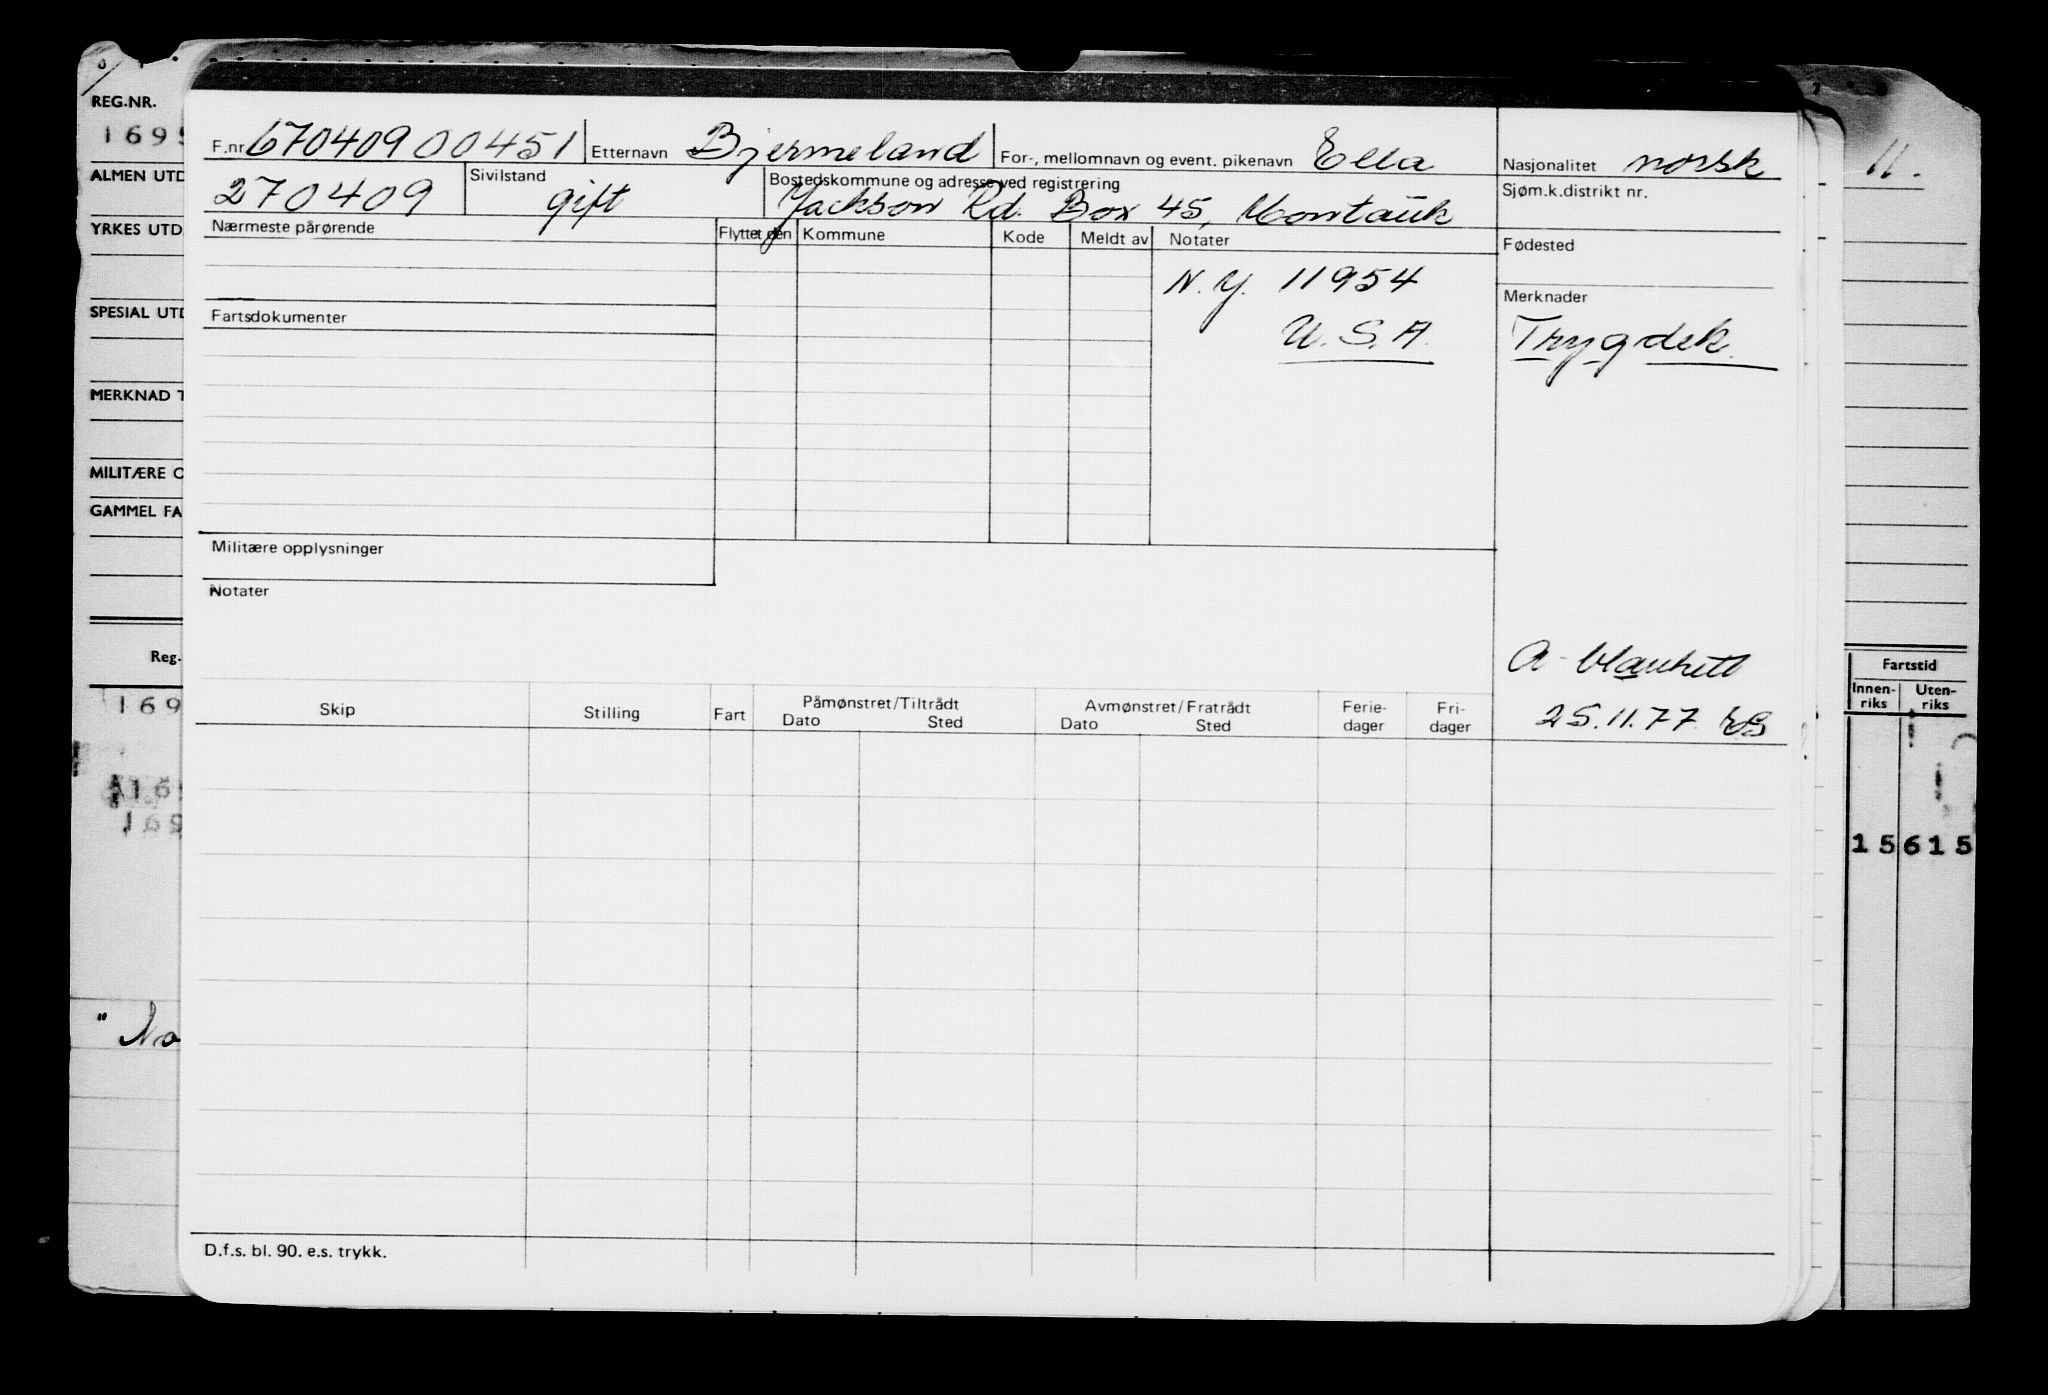 REG.NR.
169
ALMEN UTD
YRKES UTD
SPESIAL UTD
MERKNAD T
MILITÆRE O
GAMMEL FA
Reg.
169
A169
" No
F.nr. 67040900451 Etternavn Bjermeland For-, mellomnavn og event. pikenavn Ella Nasjonalitet norsk
270409 Sivilstand gift Bostedskommune og adresse ved registrering Jackson Rd. Box 45, Montauk Sjøm.k.distrikt nr.
Nærmeste pårørende Flyttet den Kommune Kode Meldt av Notater Fødested
N.Y. 11954
U.S.A.
Merknader
Trygdek.
Fartsdokumenter
Militære opplysninger
Notater
A-blankett
25.11.77
Skip Stilling Fart Påmønstret/Tiltrådt Avmønstret/Fratrådt Ferie-dager Fri-dager
Dato Sted Dato Sted
D.f.s. bl. 90. e.s. trykk.
11.
Fartstid
Innen-riks Uten-riks
15 615